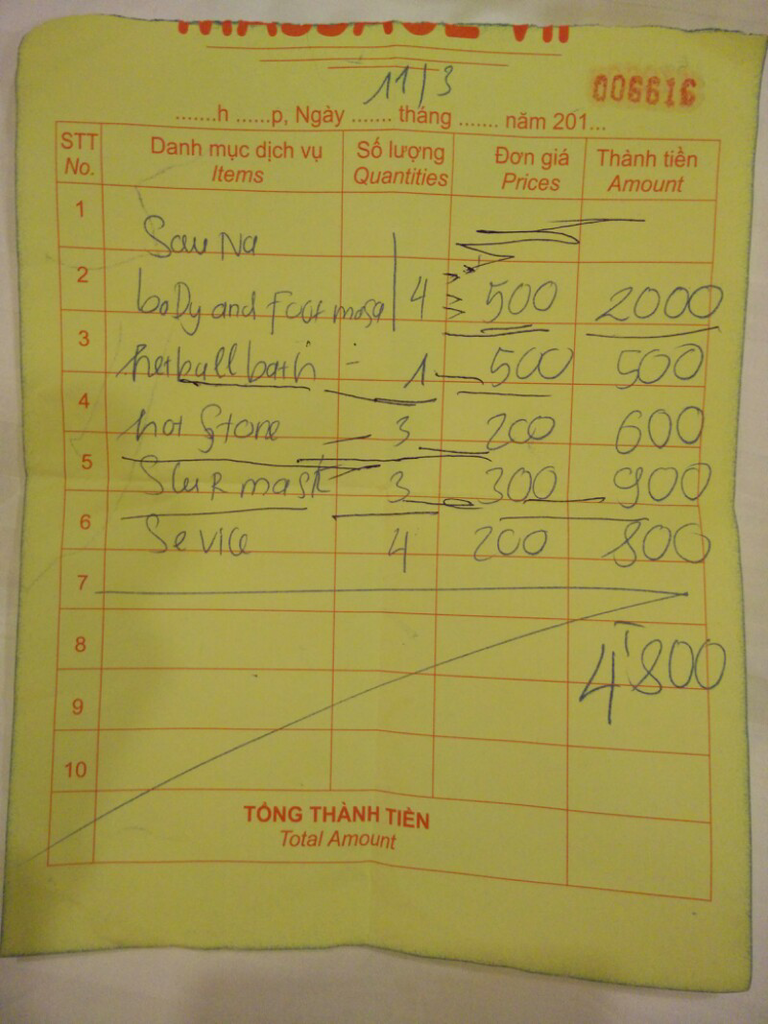 MASSAGE VIP
11/3
006616
.......h ......p, Ngày ....... tháng ....... năm 201...
STT No. Danh mục dịch vụ Items Số lượng Quantities Đơn giá Prices Thành tiền Amount
1 Sauna
2 body and foot masa 4 500 2000
3 herball bath - 1 500 500
4 hot Stone 3 200 600
5 3 300 900
6 Sevice 4 200 800
7
8 4800
9
10
TỔNG THÀNH TIỀN
Total Amount